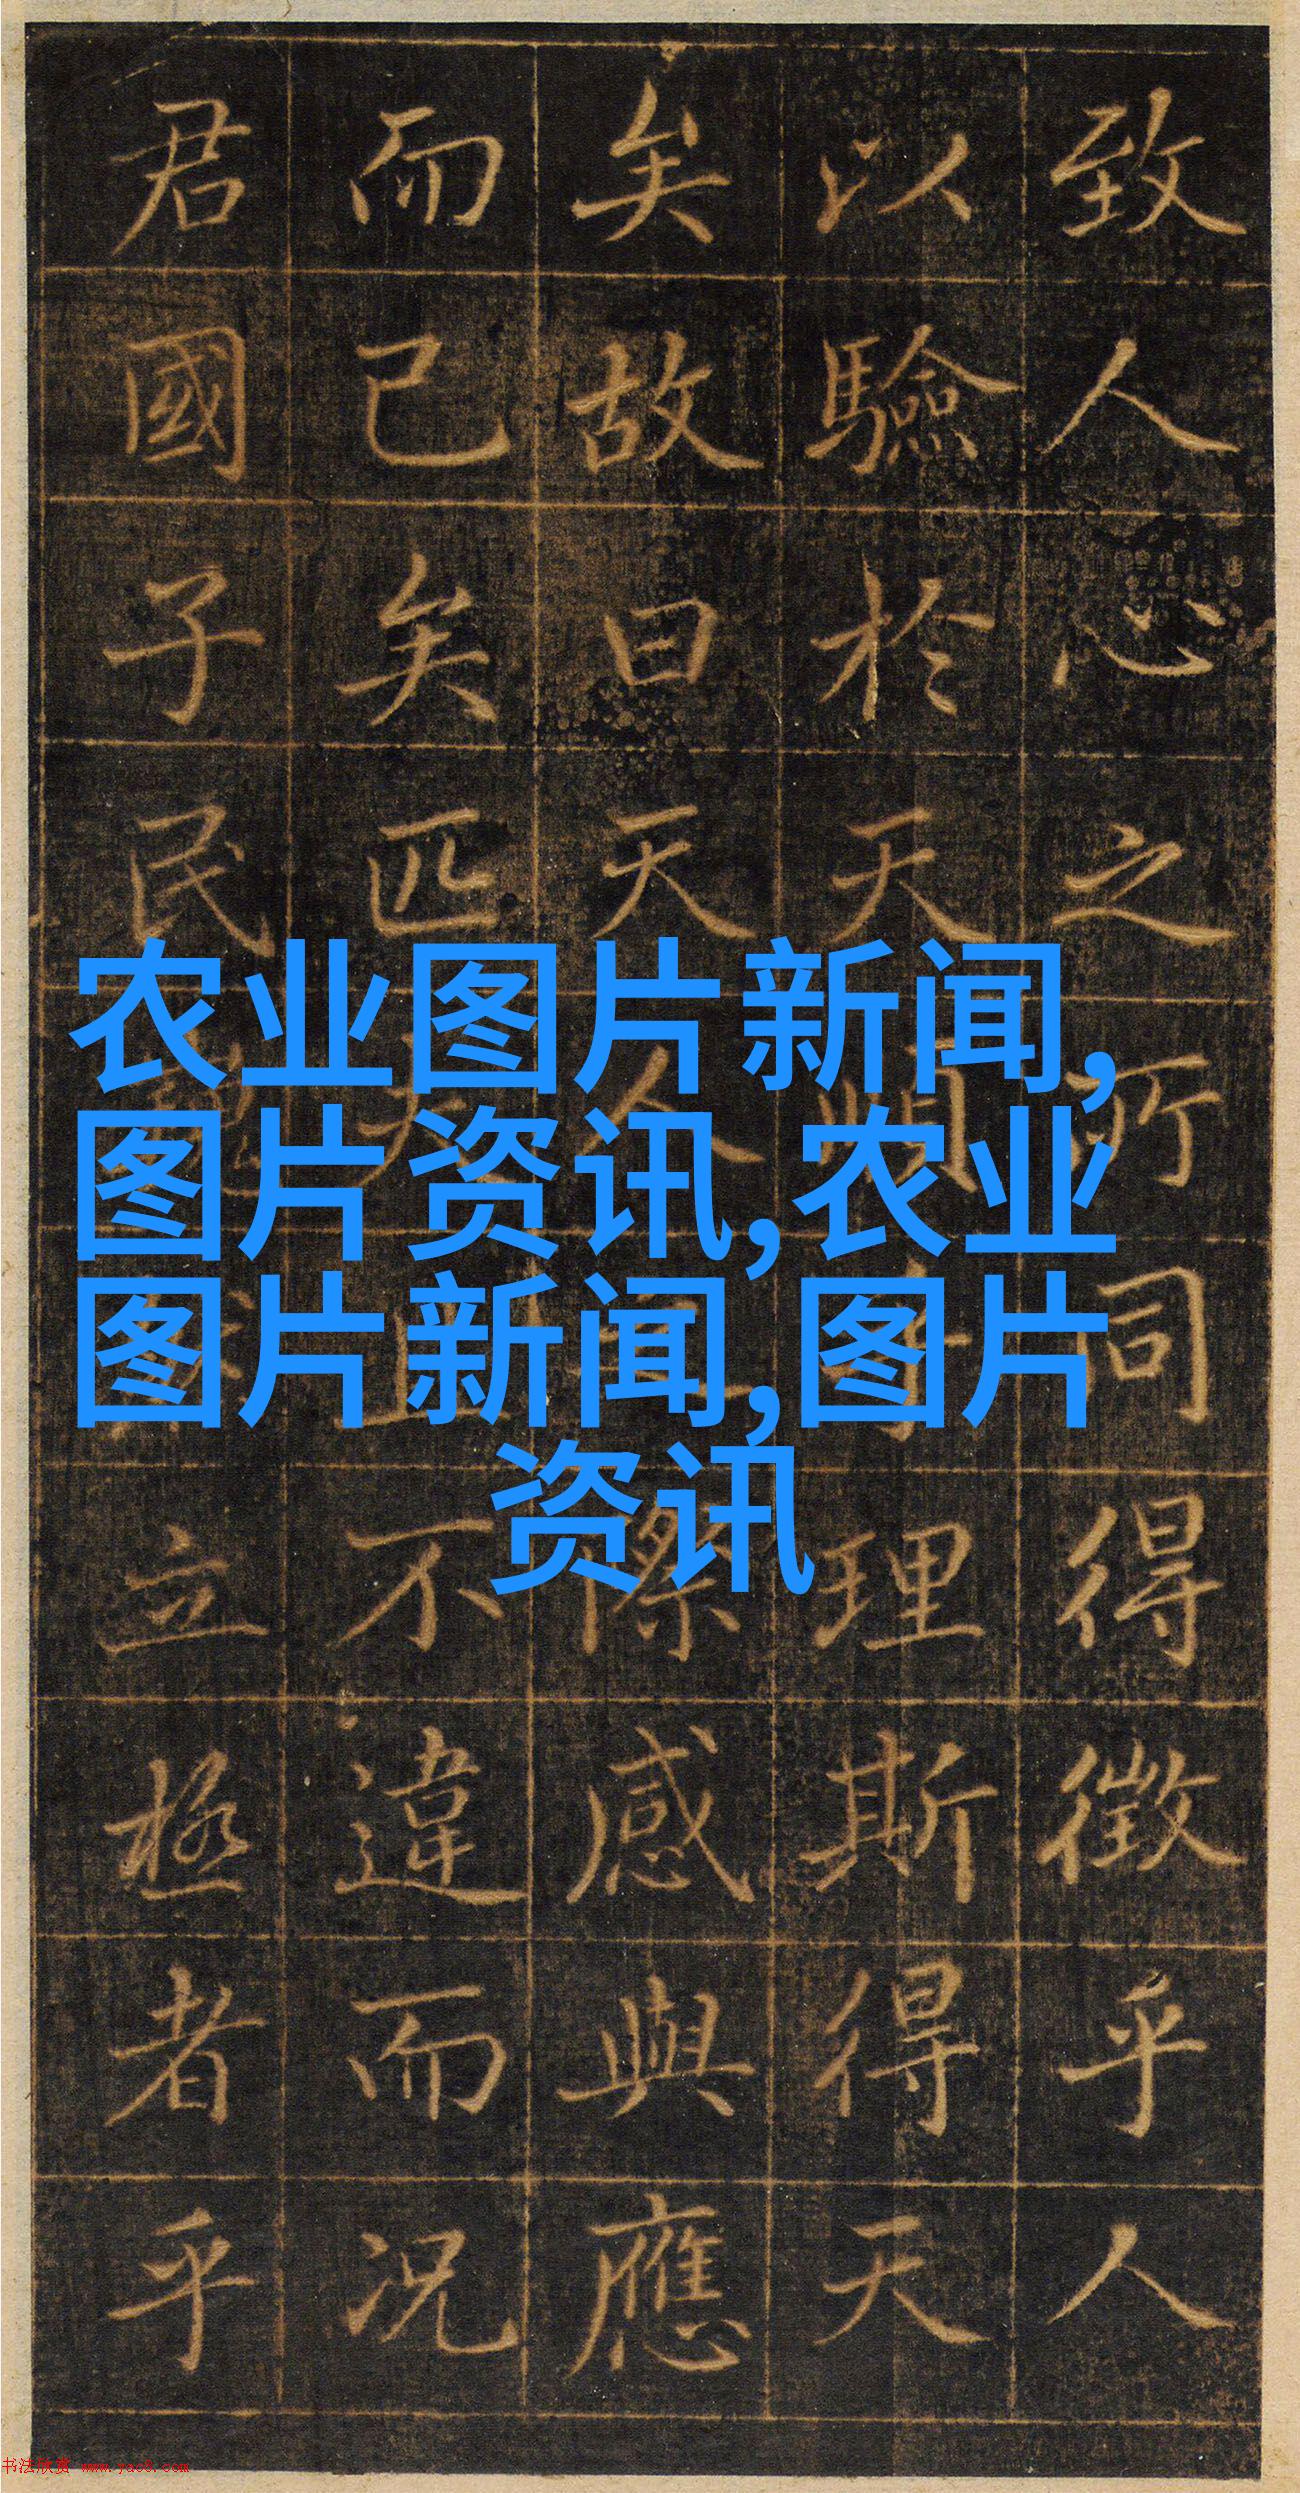 致人心之所同得徵乎人
以驗於天理斯得天
矣故曰天人際感與應
而已矣匹不違而況
君國子民立極者乎
农业图片新闻,
图片资讯,农业
图片新闻,图片
资讯
书法欣赏 www.yac8.com